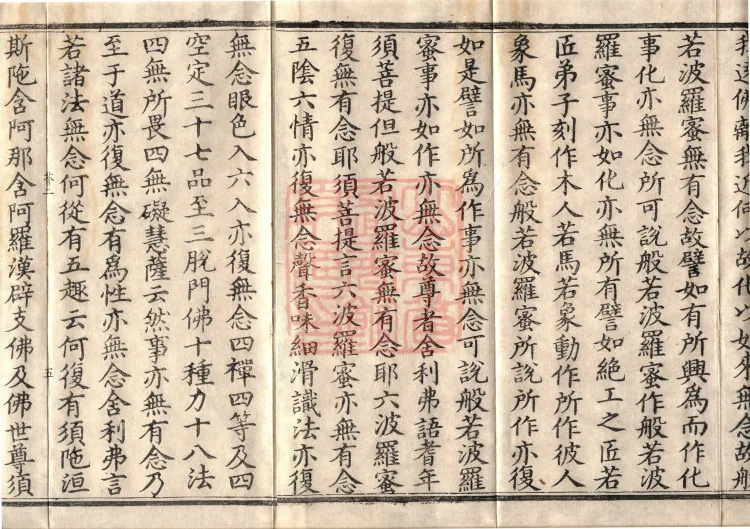 若波羅蜜無有念故譬如有所興為而作化
事化亦無念所可說般若波羅蜜作般若波
羅蜜事亦如化亦無所有譬如絕工之匠若
匠弟子刻作木人若馬若象動作所作彼人
象馬亦無有念般若波羅蜜所說所作亦復
如是譬如所為作事亦無念可說般若波羅
蜜事亦如作亦無念故尊者舍利弗語耆年
須菩提但般若波羅蜜無有念耶六波羅蜜
復無有念耶須菩提言六波羅蜜亦無有念
五陰六情亦復無念聲香味細滑識法亦復
無念眼色入六入亦復無念四禪四等及四
空定三十七品至三脫門佛十種力十八法
四無所畏四無礙慧薩云然事亦無有念乃
至于道亦復無念有為性亦無念舍利弗言
若諸法無念何從有五趣云何復有須陁洹
五
斯陁含阿那含阿羅漢辟支佛及佛世尊須